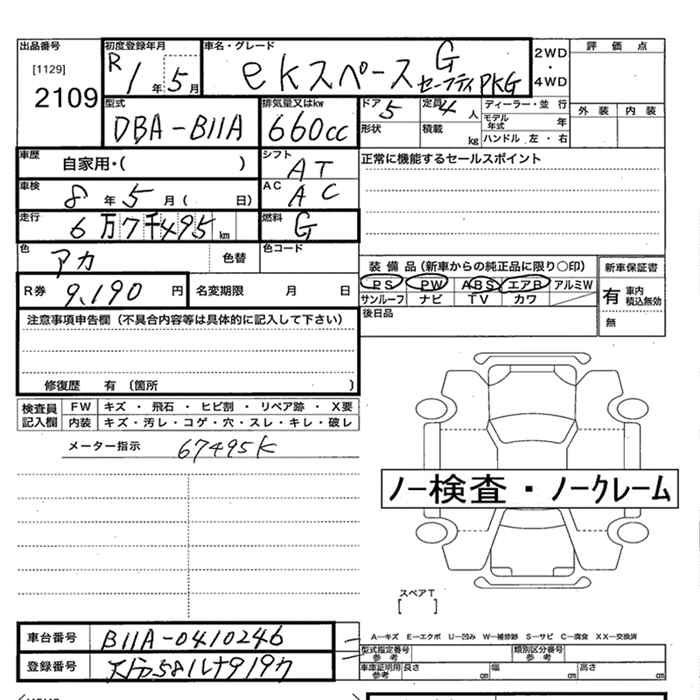 出品番号 初度登録年月 車名・グレード 2WD ・ 4WD 評価点
[1129] R 1年 5月 eKスペース G セーフティPKG
2109
外装 内装
型式 排気量又はkw ドア 5 定員 4人 ディーラー・並行
DBA-B11A 660cc 形状 積載 kg モデル年式 年
ハンドル 左・右
車歴 自家用・( ) シフト AT 正常に機能するセールスポイント
車検 8年 5月( 日) AC AC
走行 6万7千495km 燃料 G
色 アカ 色替 色コード
装備品(新車からの純正品に限り○印) 新車保証書
R券 9,190円 名変期限 月 日 PS PW ABS エアB アルミW 有 車内積込無効
サンルーフ ナビ TV カワ
注意事項申告欄(不具合内容等は具体的に記入して下さい) 後日品 無
修復歴 有 (箇所 )
検査員記入欄 FW キズ・飛石・ヒビ割・リペア跡・X要
内装 キズ・汚レ・コゲ・穴・スレ・キレ・破レ
メーター指示 67495K
ノー検査・ノークレーム
スペアT
[ ]
車台番号 B11A-0410246
A―キズ E―エクボ U―凹み W―補修跡 S―サビ C―腐食 XX―交換済
型式指定番号 参考 類別区分番号 参考
登録番号
車庫証明用 参考 長さ cm 幅 cm 高さ cm